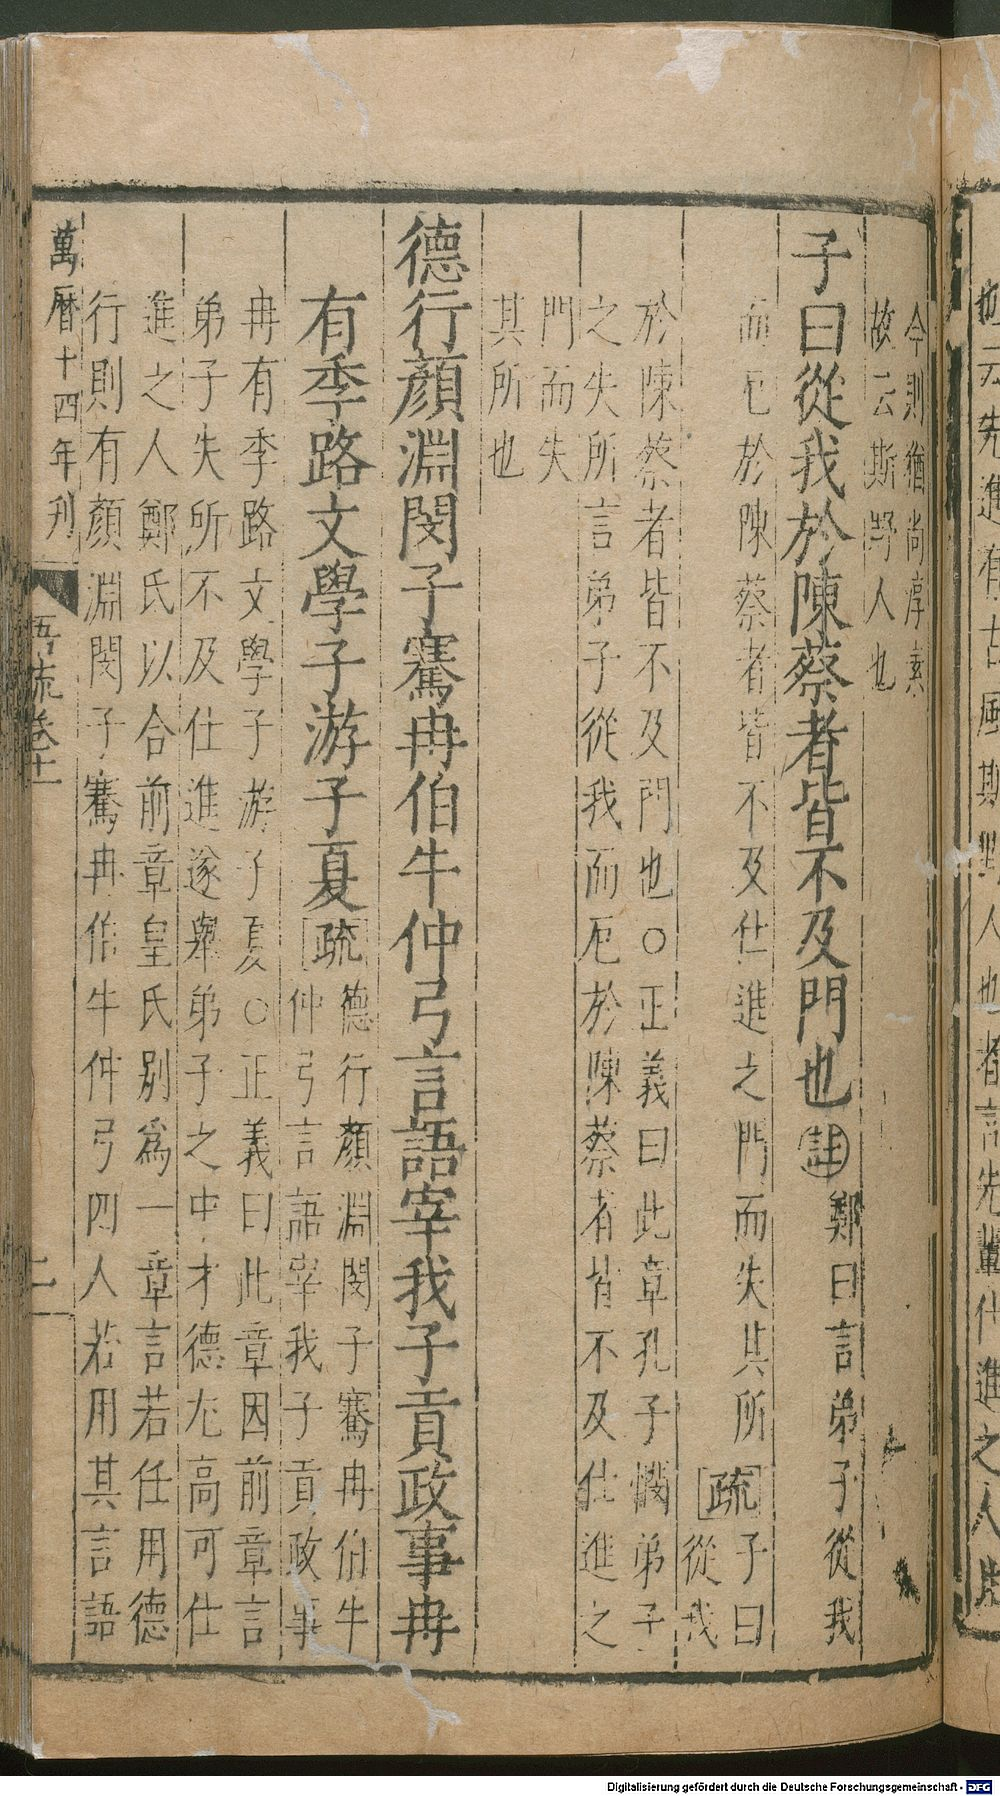 云先進有古風斯野人也者言先輩代進之人
今則猶尚淳素
故云斯野人也
子曰從我於陳蔡者皆不及門也 註 鄭曰言弟子從我
而厄於陳蔡者皆不及仕進之門而失其所 疏 子曰
從我
於陳蔡者皆不及門也○正義曰此章孔子憫弟子
之失所言弟子從我而厄於陳蔡者皆不及仕進之
門而失
其所也
德行顏淵閔子騫冉伯牛仲弓言語宰我子貢政事冉
有季路文學子游子夏 疏 德行顏淵閔子騫冉伯牛
仲弓言語宰我子貢政事
冉有季路文學子游子夏○正義曰此章因前章言
弟子失所不及仕進遂舉弟子之中才德尤高可仕
進之人鄭氏以合前章皇氏別爲一章言若任用德
行則有顏淵閔子騫冉伯牛仲弓四人若用其言語
萬曆十四年刋
語疏卷十一
二
Digitalisierung gefördert durch die Deutsche Forschungsgemeinschaft - DFG